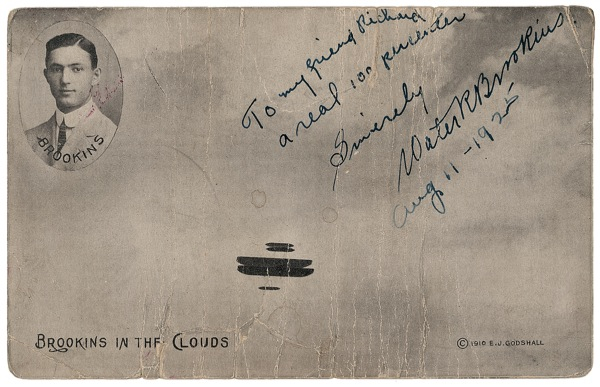 BROOKINS
To my friend Richard
a real 100 percenter
Sincerely
Walter R Brookins.
Aug 11 - 1925
BROOKINS IN THE CLOUDS
© 1910 E.J. GODSHALL